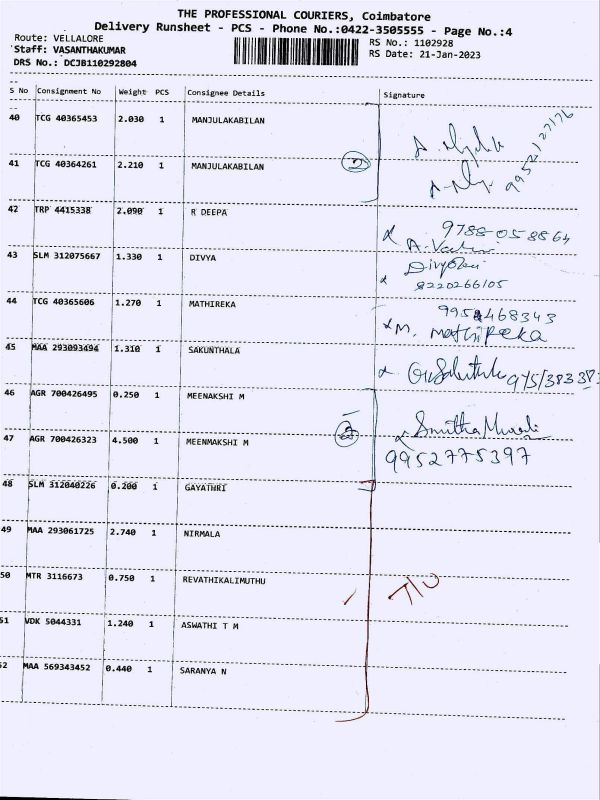 THE PROFESSIONAL COURIERS, Coimbatore
Delivery Runsheet - PCS - Phone No.:0422-3505555 - Page No.:4
Route: VELLALORE
Staff: VASANTHAKUMAR
DRS No.: DCJB110292804
RS No.: 1102928
RS Date: 21-Jan-2023
S No Consignment No Weight PCS Consignee Details Signature
40 TCG 40365453 2.030 1 MANJULAKABILAN
41 TCG 40364261 2.210 1 MANJULAKABILAN 2
9952127176
42 TRP 4415338 2.090 1 R DEEPA
9788058864
43 SLM 312075667 1.330 1 DIVYA
8220266105
44 TCG 40365606 1.270 1 MATHIREKA
M. Mathireka
45 MAA 293093494 1.310 1 SAKUNTHALA
46 AGR 700426495 0.250 1 MEENAKSHI M
47 AGR 700426323 4.500 1 MEENMAKSHI M
9952775397
48 SLM 312040226 0.200 1 GAYATHRI
49 MAA 293061725 2.740 1 NIRMALA
50 MTR 3116673 0.750 1 REVATHIKALIMUTHU
T/O
51 VDK 5044331 1.240 1 ASWATHI T M
52 MAA 569343452 0.440 1 SARANYA N